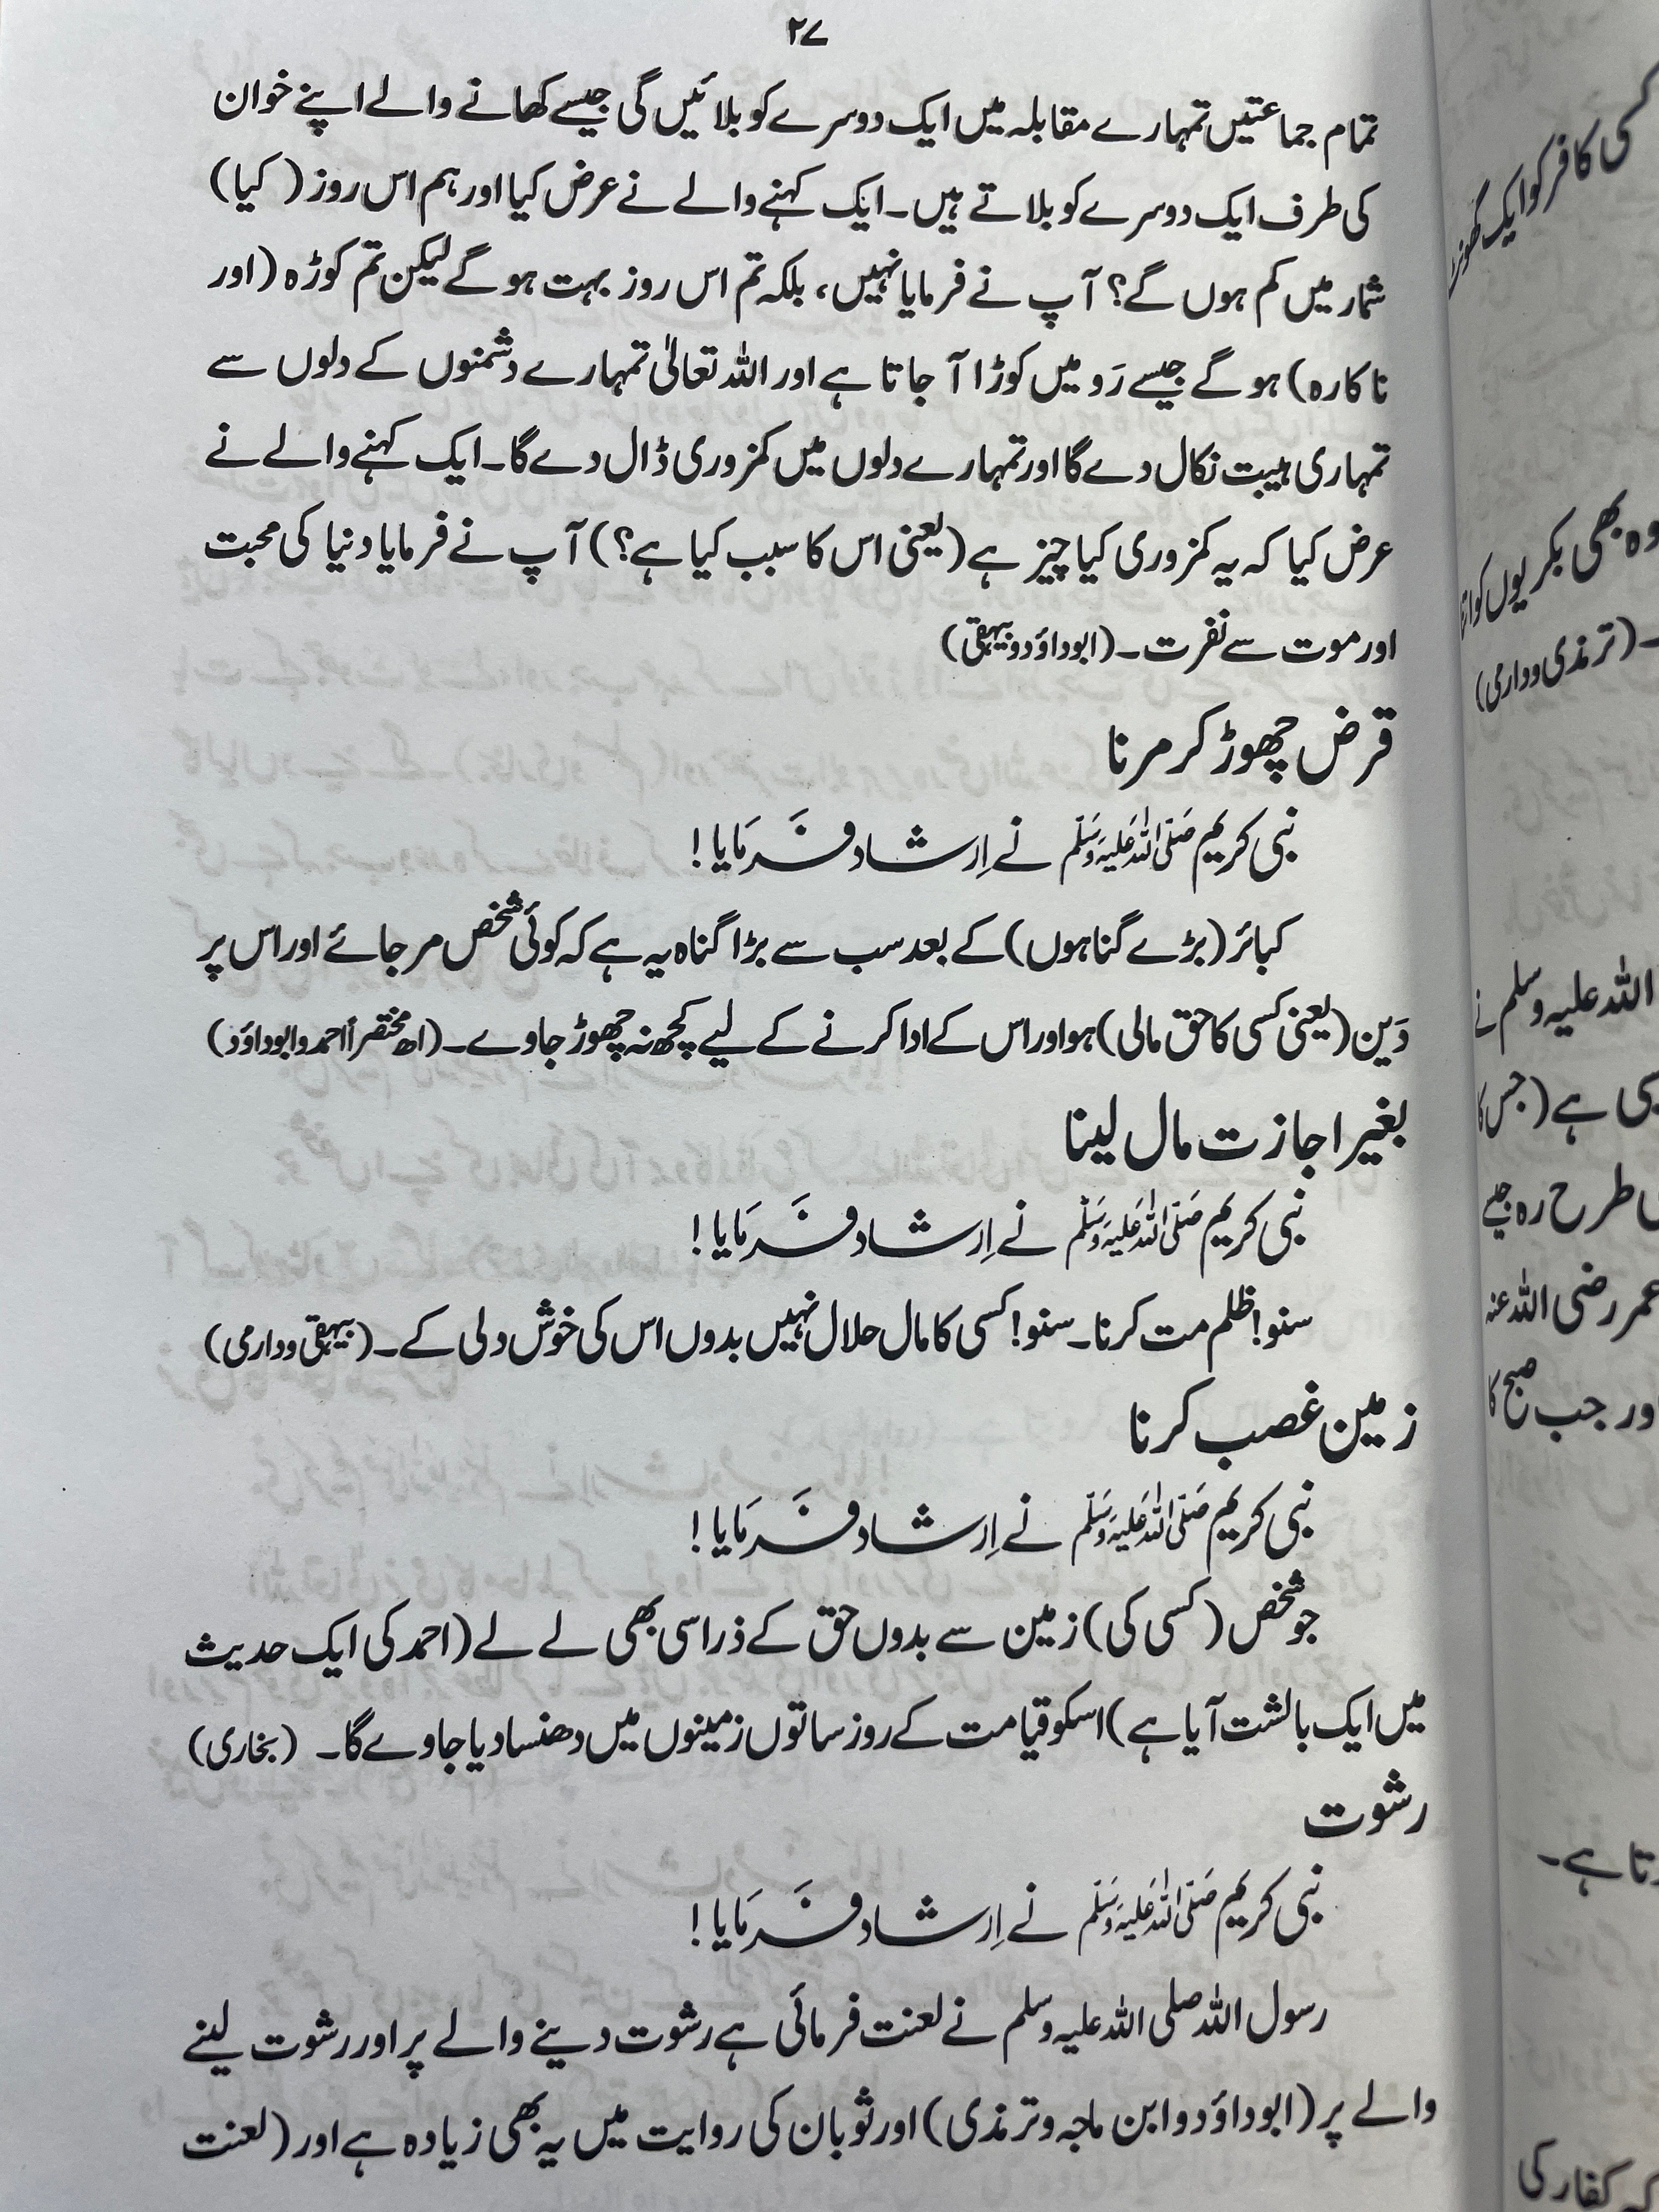 ۲۷
تمام جماعتیں تمہارے مقابلہ میں ایک دوسرے کو بلائیں گی جیسے کھانے والے اپنے خوان
کی طرف ایک دوسرے کو بلاتے ہیں۔ ایک کہنے والے نے عرض کیا اور ہم اس روز (کیا)
شمار میں کم ہوں گے؟ آپ نے فرمایا نہیں، بلکہ تم اس روز بہت ہو گے لیکن تم کوڑہ (اور
ناکارہ) ہو گے جیسے رَو میں کوڑا آ جاتا ہے اور اللہ تعالیٰ تمہارے دشمنوں کے دلوں سے
تمہاری ہیبت نکال دے گا اور تمہارے دلوں میں کمزوری ڈال دے گا۔ ایک کہنے والے نے
عرض کیا کہ یہ کمزوری کیا چیز ہے (یعنی اس کا سبب کیا ہے؟) آپ نے فرمایا دنیا کی محبت
اور موت سے نفرت۔ (ابوداؤد و بیہقی)
قرض چھوڑ کر مرنا
نبی کریم صَلَّی اللہُ عَلَیْہِ وَسَلَّم نے اِرشاد فَرمَایا!
کبائر (بڑے گناہوں) کے بعد سب سے بڑا گناہ یہ ہے کہ کوئی شخص مر جائے اور اس پر
دَین (یعنی کسی کا حق مالی) ہو اور اس کے ادا کرنے کے لیے کچھ نہ چھوڑ جاوے۔ (اھ مختصراً احمد و ابوداؤد)
بغیر اجازت مال لینا
نبی کریم صَلَّی اللہُ عَلَیْہِ وَسَلَّم نے اِرشاد فَرمَایا!
سنو! ظلم مت کرنا۔ سنو! کسی کا مال حلال نہیں بدوں اس کی خوش دلی کے۔ (بیہقی و دارمی)
زمین غصب کرنا
نبی کریم صَلَّی اللہُ عَلَیْہِ وَسَلَّم نے اِرشاد فَرمَایا!
جو شخص (کسی کی) زمین سے بدوں حق کے ذرا سی بھی لے لے (احمد کی ایک حدیث
میں ایک بالشت آیا ہے) اسکو قیامت کے روز ساتوں زمینوں میں دھنسا دیا جاوے گا۔ (بخاری)
رشوت
نبی کریم صَلَّی اللہُ عَلَیْہِ وَسَلَّم نے اِرشاد فَرمَایا!
رسول اللہ صلی اللہ علیہ وسلم نے لعنت فرمائی ہے رشوت دینے والے پر اور رشوت لینے
والے پر (ابوداؤد و ابن ماجہ و ترمذی) اور ثوبان کی روایت میں یہ بھی زیادہ ہے اور (لعنت
کسی کافر کو ایک گھونٹ
وہ بھی بکریوں کو
۔ (ترمذی و دارمی)
اللہ علیہ وسلم نے
ہے (جس کا
طرح رہ جیسے
عمر رضی اللہ عنہ
اور جب صبح کا
ہے۔
کہ کفار کی